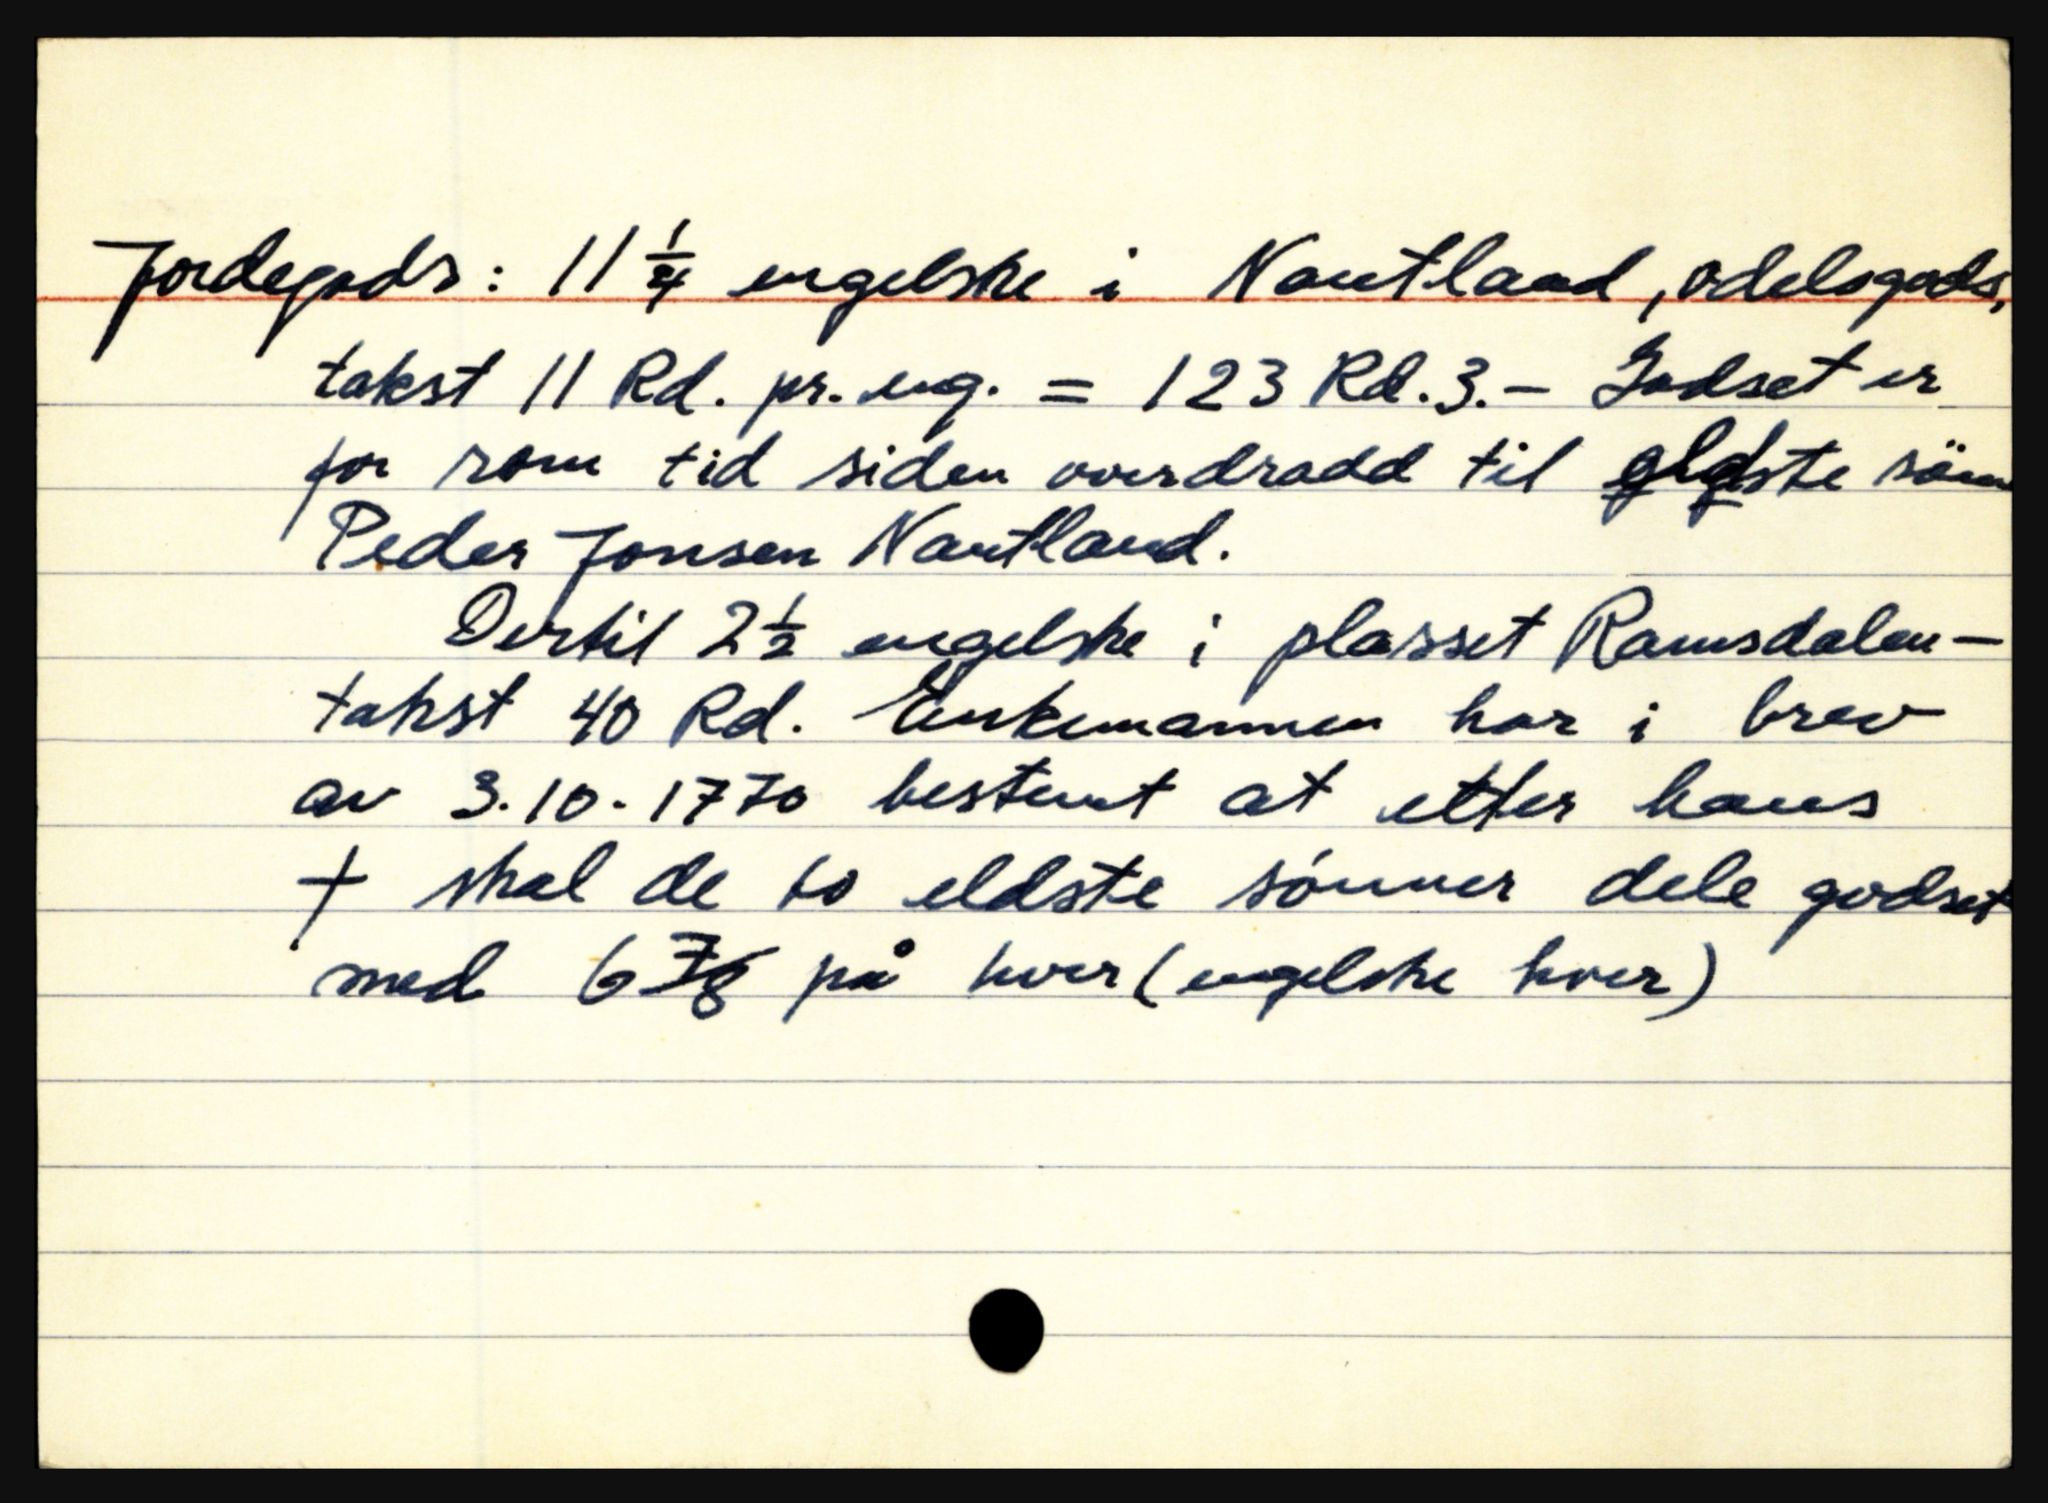 Jordegods: 11 1/4 engelske i Nautland, odelsgods,
takst 11 Rd. pr. eng. = 123 Rd. 3. - Godset er
for rom tid siden overdradd til eldste sönn
Peder Jonsen Nautland.
Dertil 2 1/2 engelske i plasset Ramsdalen -
takst 40 Rd. Enkemannen har i brev
av 3.10.1770 bestemt at etter hans
† skal de to eldste sónner dele godset
med 6 7/8 på hver (engelske hver)